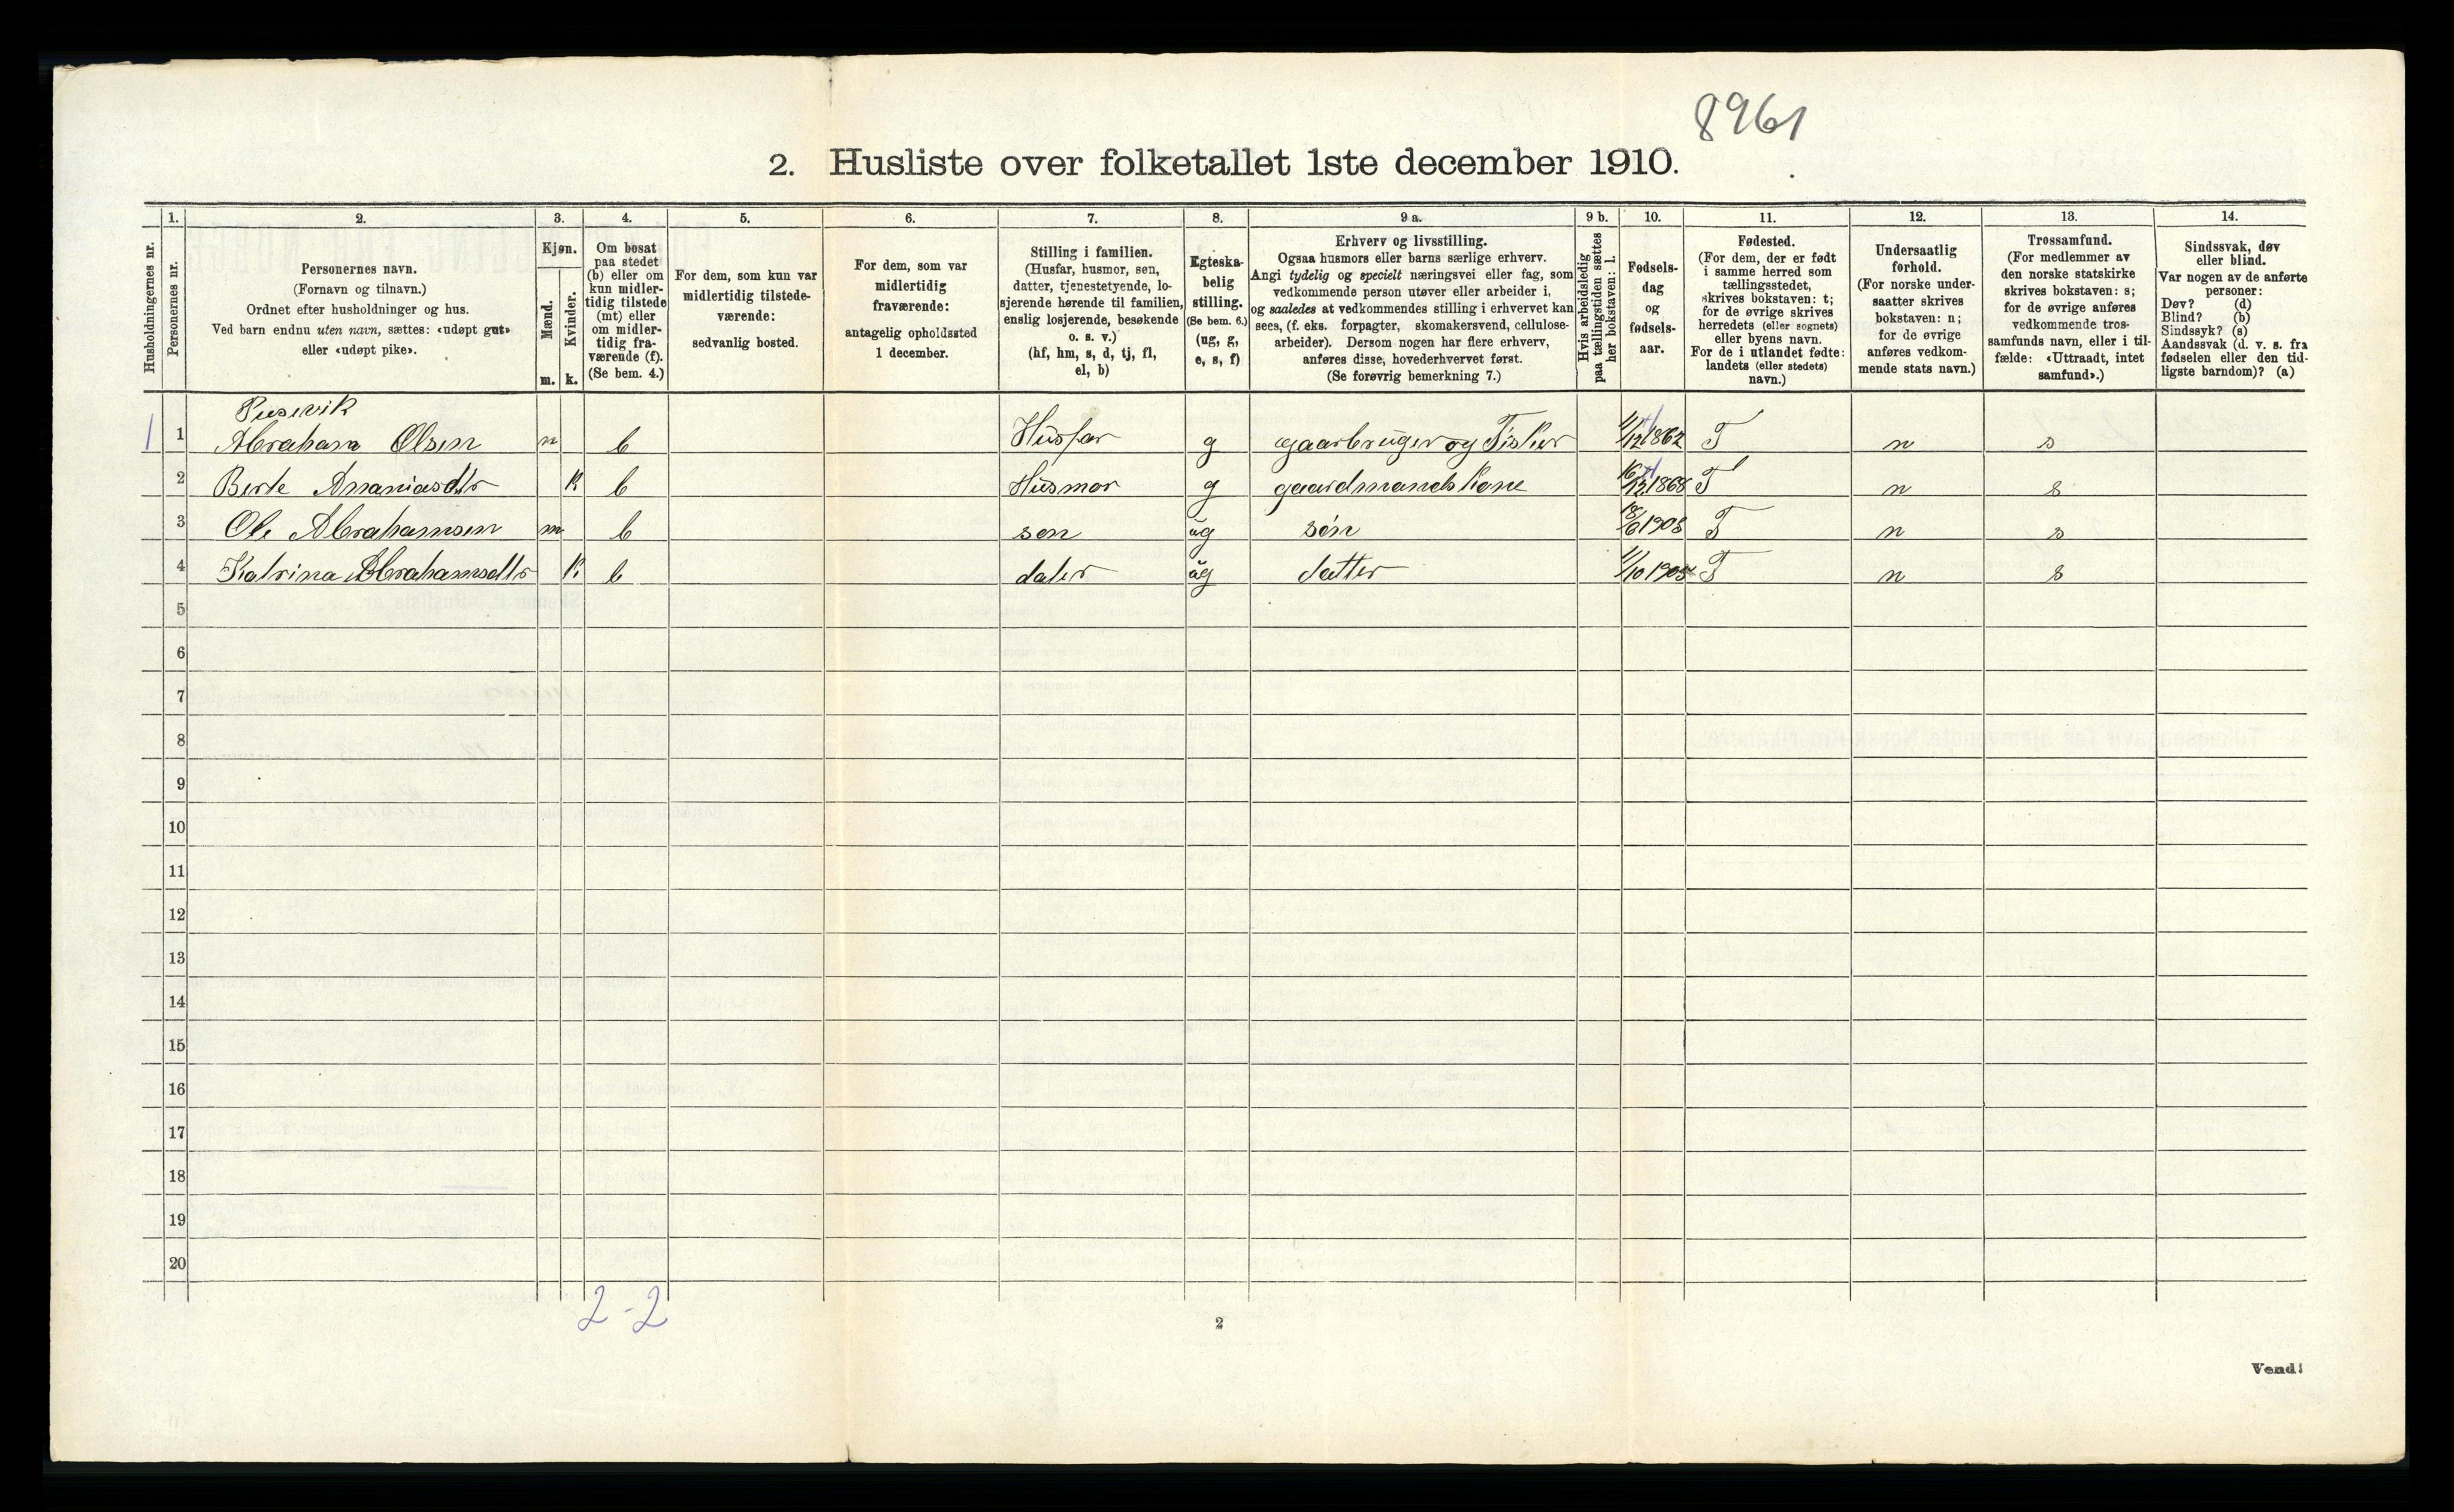 8961
2. Husliste over folketallet 1ste december 1910.
Husholdningernes nr.
1.
Personernes nr.
2.
Personernes navn.
(Fornavn og tilnavn.)
Ordnet efter husholdninger og hus.
Ved barn endnu uten navn, sættes: «udøpt gut»
eller «udøpt pike».
3.
Kjøn.
Mænd.
m.
Kvinder.
k.
4.
Om bosat
paa stedet
(b) eller om
kun midler-
tidig tilstede
(mt) eller
om midler-
tidig fra-
værende (f).
(Se bem. 4.)
5.
For dem, som kun var
midlertidig tilstede-
værende:
sedvanlig bosted.
6.
For dem, som var
midlertidig
fraværende:
antagelig opholdssted
1 december.
7.
Stilling i familien.
(Husfar, husmor, søn,
datter, tjenestetyende, lo-
sjerende hørende til familien,
enslig losjerende, besøkende
o. s. v.)
(hf, hm, s, d, tj, fl,
el, b)
8.
Egteska-
belig
stilling.
(Se bem. 6.)
(ug, g,
e, s, f)
9 a.
Erhverv og livsstilling.
Ogsaa husmors eller barns særlige erhverv.
Angi tydelig og specielt næringsvei eller fag, som
vedkommende person utøver eller arbeider i,
og saaledes at vedkommendes stilling i erhvervet kan
sees, (f. eks. forpagter, skomakersvend, cellulose-
arbeider). Dersom nogen har flere erhverv,
anføres disse, hovederhvervet først.
(Se forøvrig bemerkning 7.)
9 b.
Hvis arbeidsledig
paa tællingstiden sættes
her bokstaven: l.
10.
Fødsels-
dag
og
fødsels-
aar.
11.
Fødested.
(For dem, der er født
i samme herred som
tællingsstedet,
skrives bokstaven: t;
for de øvrige skrives
herredets (eller sognets)
eller byens navn.
For de i utlandet fødte:
landets (eller stedets)
navn.)
12.
Undersaatlig
forhold.
(For norske under-
saatter skrives
bokstaven: n;
for de øvrige
anføres vedkom-
mende stats navn.)
13.
Trossamfund.
(For medlemmer av
den norske statskirke
skrives bokstaven: s;
for de øvrige anføres
vedkommende tros-
samfunds navn, eller i til-
fælde: «Uttraadt, intet
samfund».)
14.
Sindssvak, døv
eller blind.
Var nogen av de anførte
personer:
Døv? (d)
Blind? (b)
Sindssyk? (s)
Aandssvak (d. v. s. fra
fødselen eller den tid-
ligste barndom)? (a)
1 1 Abraham Olsen m b Husfar g gaarbruger og Fisker 1862 T n s
2 Berte Ananiasdtr K b Husmor g gaardmands Kone 16/12 1868 T n s
3 Ole Abrahamsen m b søn ug søn 18/6 1903 T n s
4 Katrina Abrahamsdtr K b dater ug datter T n s
5
6
7
8
9
10
11
12
13
14
15
16
17
18
19
20
2-2
2
Vend!